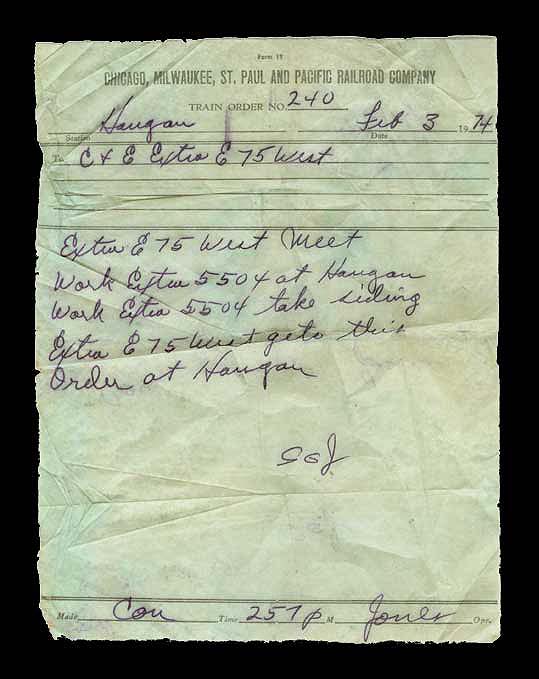 Form 19
CHICAGO, MILWAUKEE, ST. PAUL AND PACIFIC RAILROAD COMPANY
TRAIN ORDER NO. 240
Haugan Feb 3 1974
Station Date
To C & E Extra E 75 West
Extra E 75 West Meet
Work Extra 5504 at Haugan
Work Extra 5504 take siding
Extra E 75 West gets this
Order at Haugan
SGJ
Made Com Time 257 p M Jones Opr.